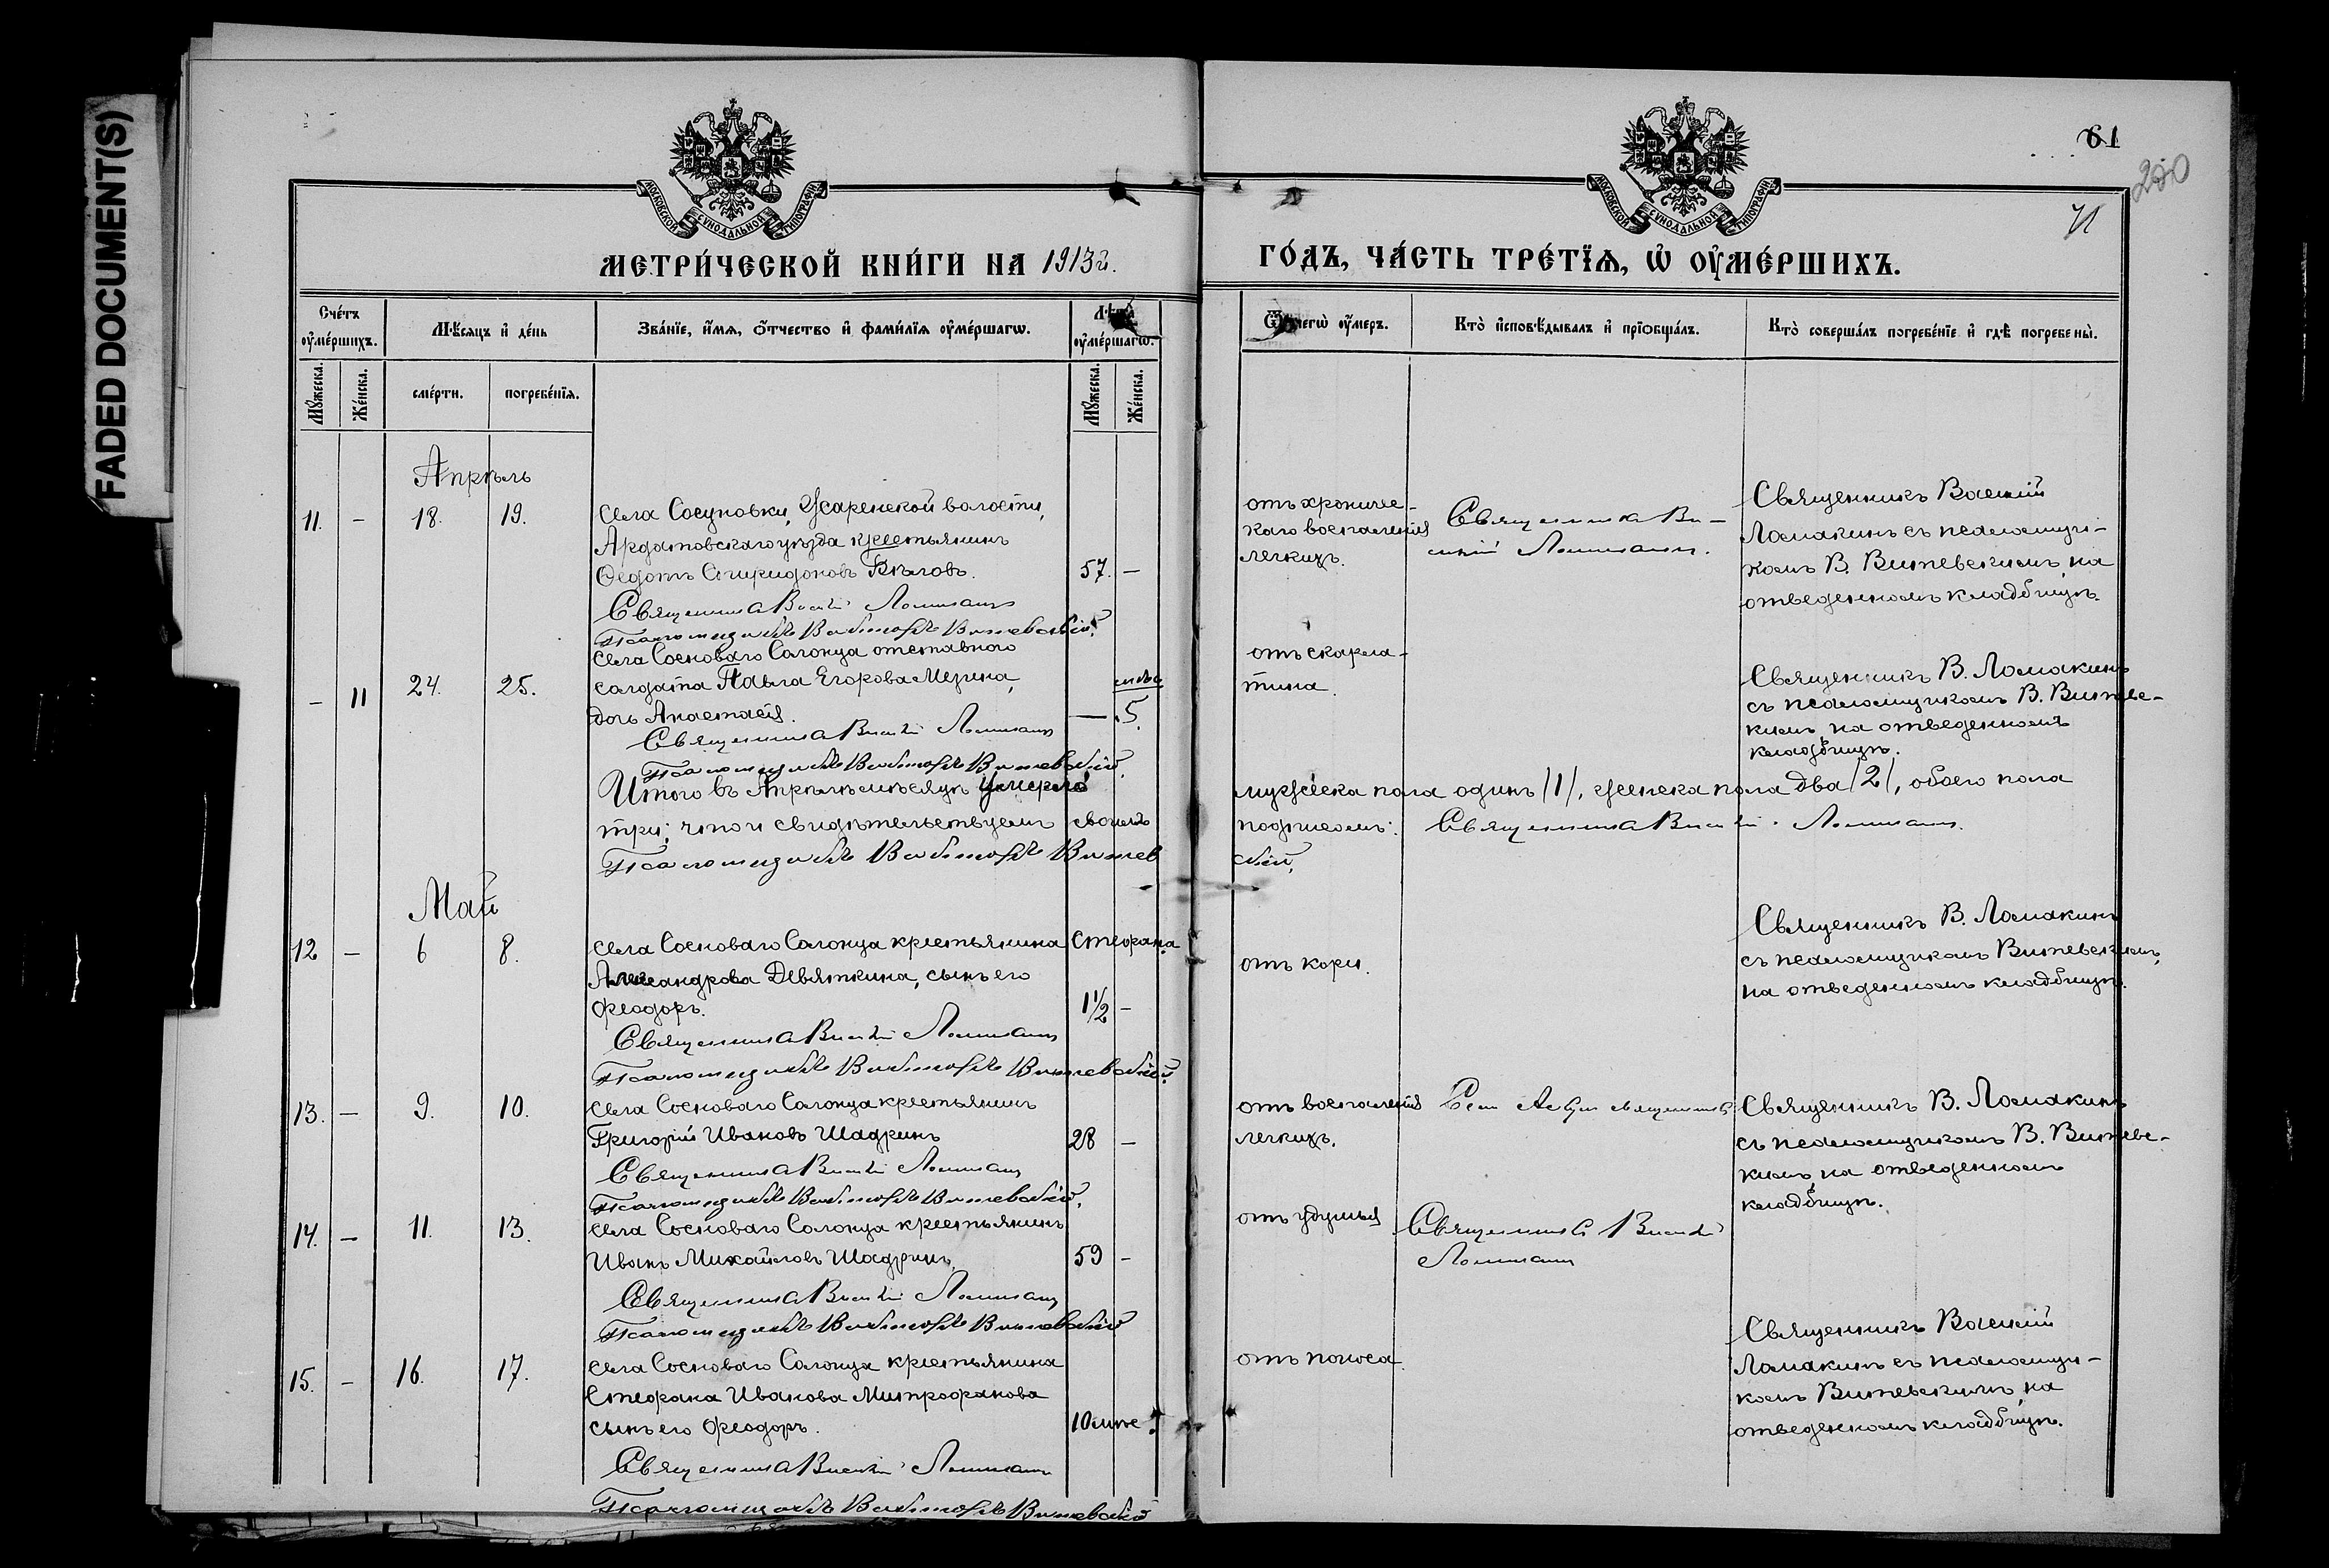 FADED DOCUMENT(S)
61
МОСКОВСКОЙ СѴНОДАЛЬНОЙ ТИПОГРАФІИ
МОСКОВСКОЙ СѴНОДАЛЬНОЙ ТИПОГРАФІИ
МЕТРИ́ЧЕСКОЙ КНИ́ГИ НА 1913й.
ГО́ДЪ, ЧА́СТЬ ТРЕ́ТЇѦ, Ѡ҆ ОУ҆МЕ́РШИХЪ.
Сче́тъ оу҆ме́ршихъ.
Мѣ́сѧцъ и҆ де́нь
Зва́нїе, и҆́мѧ, ѻ҆́тчество и҆ фами́лїѧ оу҆ме́ршагѡ.
Лѣ́та оу҆ме́ршагѡ.
Ѿ чегѡ̀ оу҆́меръ.
Кто̀ и҆сповѣ́дывалъ и҆ прїѻбща́лъ.
Кто̀ соверша́лъ погребе́нїе и҆ гдѣ̀ погребены̀.
Мꙋ́жеска.
Же́нска.
сме́рти.
погребе́нїѧ.
Мꙋ́жеска.
Же́нска.
Апрѣль
11. – 18. 19.
Села Сосуновки, Усаренской волости,
Ардатовскаго уѣзда крестьянинъ
Ѳедотъ Спиридоновъ Бѣловъ.
57. –
Священникъ Василій Ломакинъ
Псаломщикъ Викторъ Витевскій.
отъ хрониче-
скаго воспаленія
легкихъ.
Священникъ Ва-
силій Ломакинъ.
Священникъ Василій
Ломакинъ съ псаломщи-
комъ В. Витевскимъ, на
отведенномъ кладбищѣ.
– 11 24. 25.
села Сосноваго Солонца отставного
солдата Павла Егорова Мерина,
дочь Анастасія.
мѣс
— 5.
Священникъ Василій Ломакинъ
Псаломщикъ Викторъ Витевскій.
отъ скарла-
тина.
Священникъ В. Ломакинъ
съ псаломщикомъ В. Витев-
скимъ, на отведенномъ
кладбищѣ.
Итого въ Апрѣлѣ мѣсяцѣ умерло мужеска пола одинъ /1/, женска пола два /2/, обоего пола
три; что и свидѣтельствуемъ своимъ подписомъ: Священникъ Василій Ломакинъ.
Псаломщикъ Викторъ Витевскій.
Май
12 – 6 8.
села Сосноваго Солонца крестьянина Стефана
Александрова Девяткина, сынъ его
Феодоръ.
1½ –
Священникъ Василій Ломакинъ
Псаломщикъ Викторъ Витевскій.
отъ кори.
Священникъ В. Ломакинъ
съ псаломщикомъ Витевскимъ,
на отведенномъ кладбищѣ.
13. – 9. 10.
села Сосноваго Солонца крестьянинъ
Григорій Ивановъ Шадринъ
28 –
Священникъ Василій Ломакинъ
Псаломщикъ Викторъ Витевскій.
отъ воспаленія
легкихъ.
Священникъ В. Ломакинъ
съ псаломщикомъ В. Витев-
скимъ, на отведенномъ
кладбищѣ.
14. – 11. 13.
села Сосноваго Солонца крестьянинъ
Иванъ Михайловъ Шадринъ.
59 –
Священникъ Василій Ломакинъ
Псаломщикъ Викторъ Витевскій
отъ удушья
Священникъ Василій
Ломакинъ
15. – 16. 17.
села Сосноваго Солонца крестьянина
Стефана Иванова Митрофанова
сынъ его Феодоръ.
10
Священникъ Василій Ломакинъ
Псаломщикъ Викторъ Витевскій
отъ поноса
Священникъ Василій
Ломакинъ съ псаломщи-
комъ Витевскимъ, на
отведенномъ кладбищѣ.